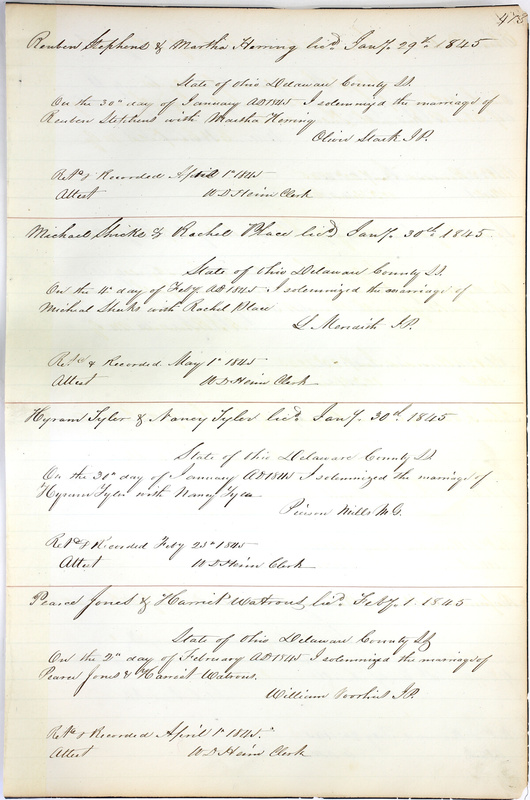 473
Reuben Stephens & Martha Herring lic'd Jan'y. 29th. 1845
State of Ohio Delaware County Ss
On the 30th day of January AD 1845 I solemnized the marriage of
Reuben Stephens with Martha Herring
Oliver Stark J.P.
Ret'd & Recorded April 1st 1845
Attest W D Heim Clerk
Michael Shicks & Rachel Place lic'd Jan'y. 30th. 1845
State of Ohio Delaware County Ss.
On the 4th day of Feb'y AD 1845 I solemnized the marriage of
Micheal Shicks with Rachel Place
L Meredith J.P.
Ret'd & Recorded May 1st 1845
Attest W D Heim Clerk
Hyram Tyler & Nancy Tyler lic'd. Jan'y. 30th. 1845
State of Ohio Delaware County Ss
On the 30th day of January AD 1845 I solemnized the marriage of
Hyram Tyler with Nancy Tyler
Pierson Mills M.G.
Ret'd & Recorded Feb'y 25th 1845
Attest W D Heim Clerk
Pearce Jones & Harriet Watrous lic'd. Feb'y. 1. 1845
State of Ohio Delaware County Ss
On the 2nd day of February AD 1845 I solemnized the marriage of
Pearce Jones & Harriet Watrous.
William Voorhis J.P.
Ret'd & Recorded April 1st 1845.
Attest W D Heim Clerk